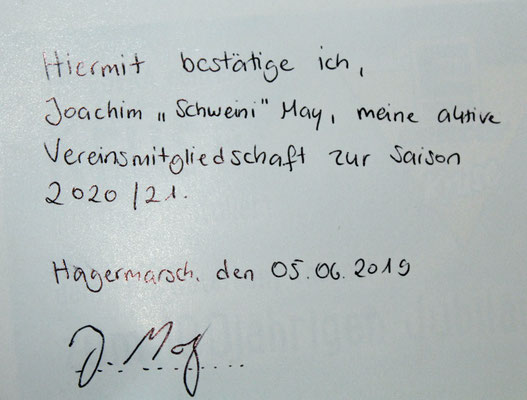 Hiermit bestätige ich,
Joachim „Schweini" May, meine aktive
Vereinsmitgliedschaft zur Saison
2020/21.
Hagermarsch, den 05.06.2019
J. May